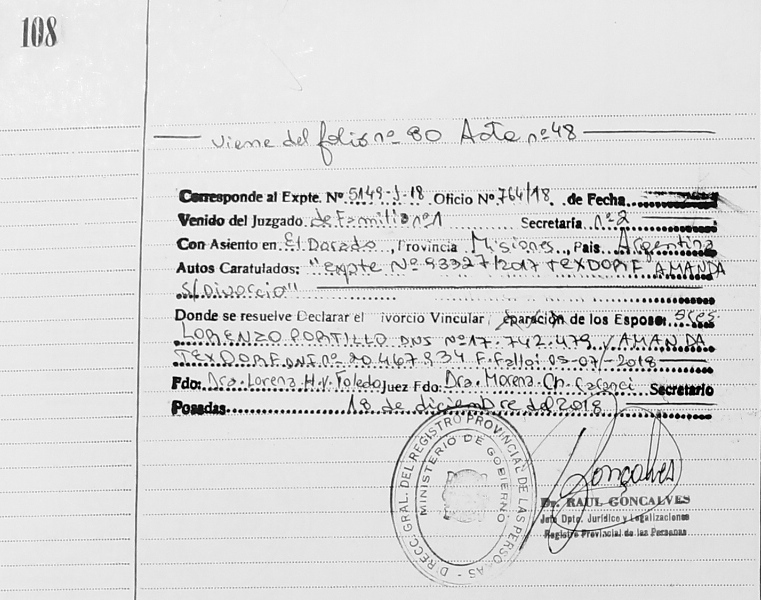 108
Viene del folio nº 80 Acta nº 48
Corresponde al Expte. Nº 5149-J-18 Oficio Nº 764/18 de Fecha
Venido del Juzgado de Familia nº1 Secretaría nº2
Con Asiento en El Dorado, Provincia Misiones, Pais Argentina
Autos Caratulados: "expte Nº 93327/2017 TEXDORF AMANDA
S/Divorcio"
Donde se resuelve Declarar el ivorcio Vincular, eparación de los Esposos sres.
LORENZO PORTILLO DNI Nº 17.742.479 y AMANDA
TEXDORF DNI nº 20.467.834 F. Fallo: 05-07-2018
Fdo: Dra. Lorena H.V. Toledo Juez Fdo: Dra. Morena Ch. Secretario
Posadas 18 de diciembre del 2018
DIRECC. GRAL. DEL REGISTRO PROVINCIAL DE LAS PERSONAS
MINISTERIO DE GOBIERNO
Goncalves
Dr. RAUL GONCALVES
Jefe Dpto. Jurídico y Legalizaciones
Registro Provincial de las Personas